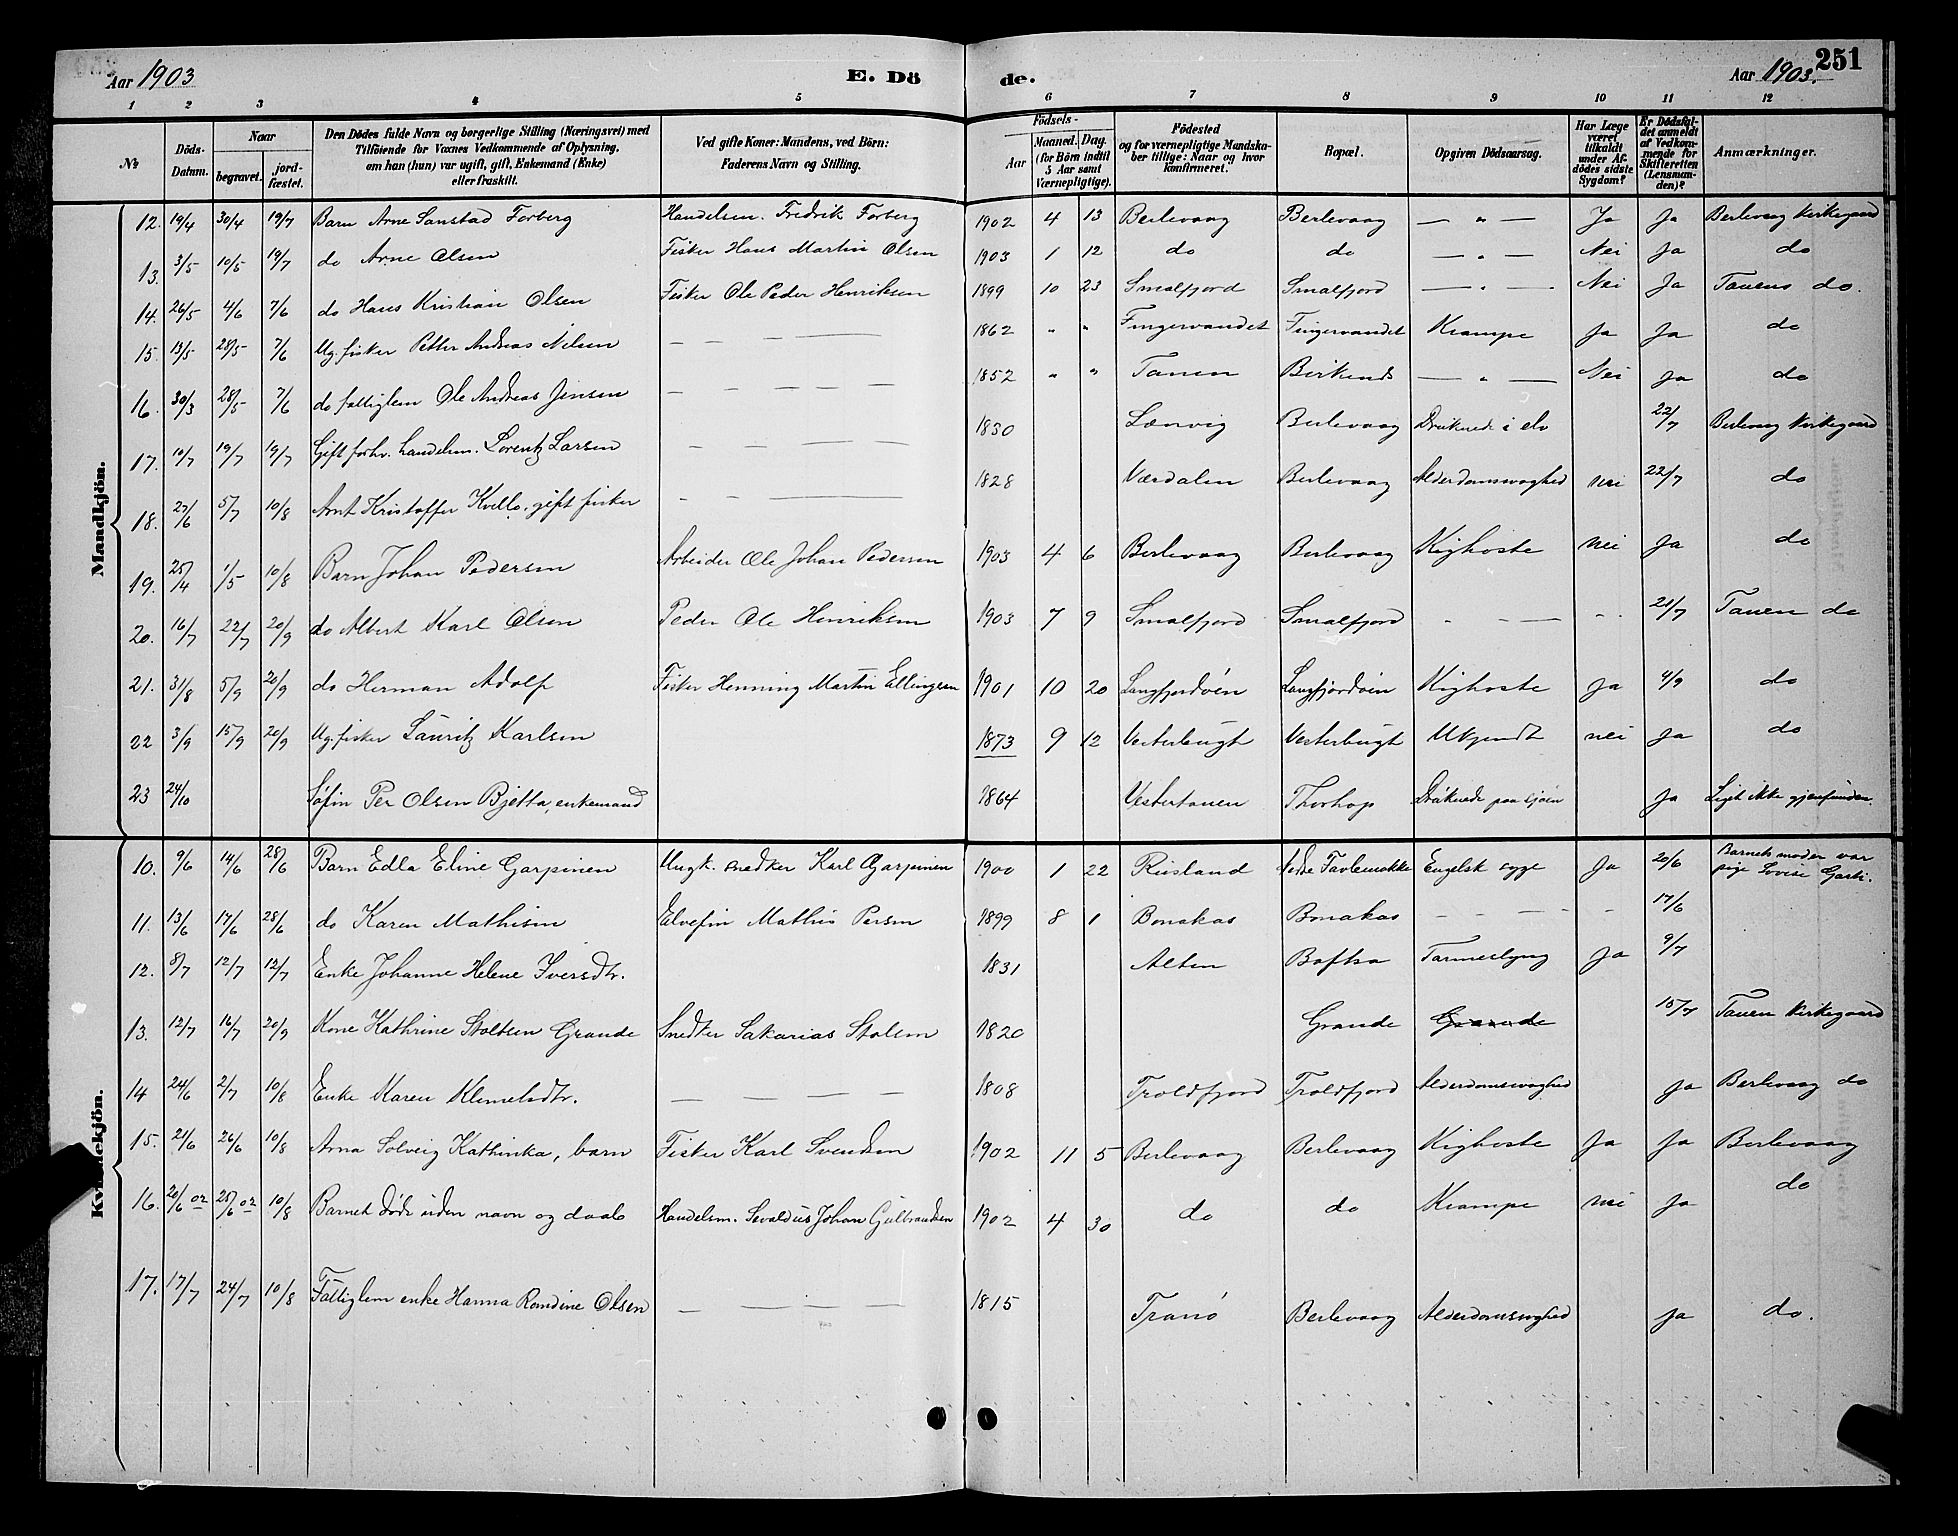 Aar 1903
E. Dö
de.
Aar 1903.
251
1 2 3 4 5 6 7 8 9 10 11 12
№
Döds-Datum.
Naar
begravet.
jord-fæstet.
Den Dödes fulde Navn og borgerlige Stilling (Næringsvei) med
Tilföiende for Voxnes Vedkommende af Oplysning,
om han (hun) var ugift, gift, Enkemand (Enke)
eller fraskilt.
Ved gifte Koner: Mandens, ved Börn:
Faderens Navn og Stilling.
Födsels-
Aar
Maaned. Dag.
(for Börn indtil
5 Aar samt
Værnepligtige).
Födested
og for værnepligtige Mandska-
ber tillige: Naar og hvor
konfirmeret.
Bopæl.
Opgiven Dödsaarsag.
Har Læge
været
tilkaldt
under Af-
dödes sidste
Sygdom?
Er Dödsfal-
det anmeldt
af Vedkom-
mende for
Skifteretten
(Lensman-
den)?
Anmærkninger.
Mandkjön.
12. 19/4 30/4 19/7 Barn Arne Sanstad Forberg Handelsm. Fredrik Forberg 1902 4 13 Berlevaag Berlevaag — " — Ja Ja Berlevaag Kirkegaard
13. 3/5 10/5 19/7 do Arne Olsen Fisker Hans Martin Olsen 1903 1 12 do do — " — Nei Ja do
14. 26/5 4/6 7/6 do Hans Kristian Olsen Fisker Ole Peder Henriksen 1899 10 23 Smalfjord Smalfjord — " — Nei Ja Tanens do.
15. 13/5 28/5 7/6 Ug. fisker Petter Andreas Nilsen — — — 1862 " " Fingervandet Fingervandet Krampe Ja Ja do
16. 30/3 28/5 7/6 do fattiglem Ole Andreas Jensen — — — — 1852 " " Tanen Birkends — " — Nei Ja do
17. 10/7 19/7 19/7 Gift forhv. handelsm. Lorentz Larsen — — — 1830 Lænvig Berlevaag Druknede i elv 22/7 Berlevaag Kirkegaard
18. 27/6 5/7 10/8 Arnt Kristoffer Kvello, gift fisker — — — 1828 Værdalen Berlevaag Alderdomsvaghed nei 22/7 do
19. 25/4 1/5 10/8 Barn Johan Pedersen Arbeider Ole Johan Pedersen 1903 4 6 Berlevaag Berlevaag Kighoste nei Ja do
20. 16/7 22/7 20/9 do Albert Karl Olsen Peder Ole Henriksen 1903 7 9 Smalfjord Smalfjord - - — - - 21/7 Tanen do
21. 31/8 5/9 20/9 do Herman Adolf Fisker Henning Martin Ellingsen 1901 10 20 Langfjordvén Langfjordvén Kighoste Ja 4/9 do
22 3/9 15/9 20/9 Ug. fisker Lauritz Karlsen 1873 9 12 Vesterbugt Vesterbugt Ukjendt nei Ja do
23 24/10 Søfin Per Olsen Bjetta, enkemand 1864 Vestertanen Thorhop Druknede paa sjøen Ja Liget ikke gjenfunden.
Kvindekjön.
10. 9/6 14/6 28/6 Barn Edla Eline Garpinen Ungk. snedker Karl Garpinen 1900 1 22 Rusland Engelsk syge Ja 20/6 Barnets moder var
pige Lovise
11. 13/6 17/6 28/6 do Karen Mathisen Elvefin Mathis Persen 1899 8 1 Bonakas Bonakas - - - - - 17/6
12. 8/7 12/7 12/7 Enke Johanne Helene Iversdtr. 1831 Alten Boftsa Tarmeslyng Ja 9/7
13. 12/7 16/7 20/9 Kone Kathrine Stoltsen Grande Snedker Sakarias Stolsen 1820 Grande Grande 15/7 Tanen Kirkegaard
14 24/6 2/7 10/8 Enke Karen Klemetsdtr. — — — — 1808 Troldfjord Troldfjord Alderdomsvaghed Ja Berlevaag do
15. 21/6 26/6 10/8 Arna Solveig Kathinka, barn Fisker Karl Svendsen 1902 11 5 Berlevaag Berlevaag Kighoste Ja Ja Berlevaag
16. 20/6 02 25/6 02 10/8 Barnet døde uden navn og daab Handelsm. Sevaldus Johan Gulbrandsen 1902 4 30 do do Krampe nei Ja do
17. 17/7 24/7 10/8 Fattiglem enke Hanna Romdine Olsen — — — — 1815 Tranø Berlevaag Alderdomsvaghed Ja do.